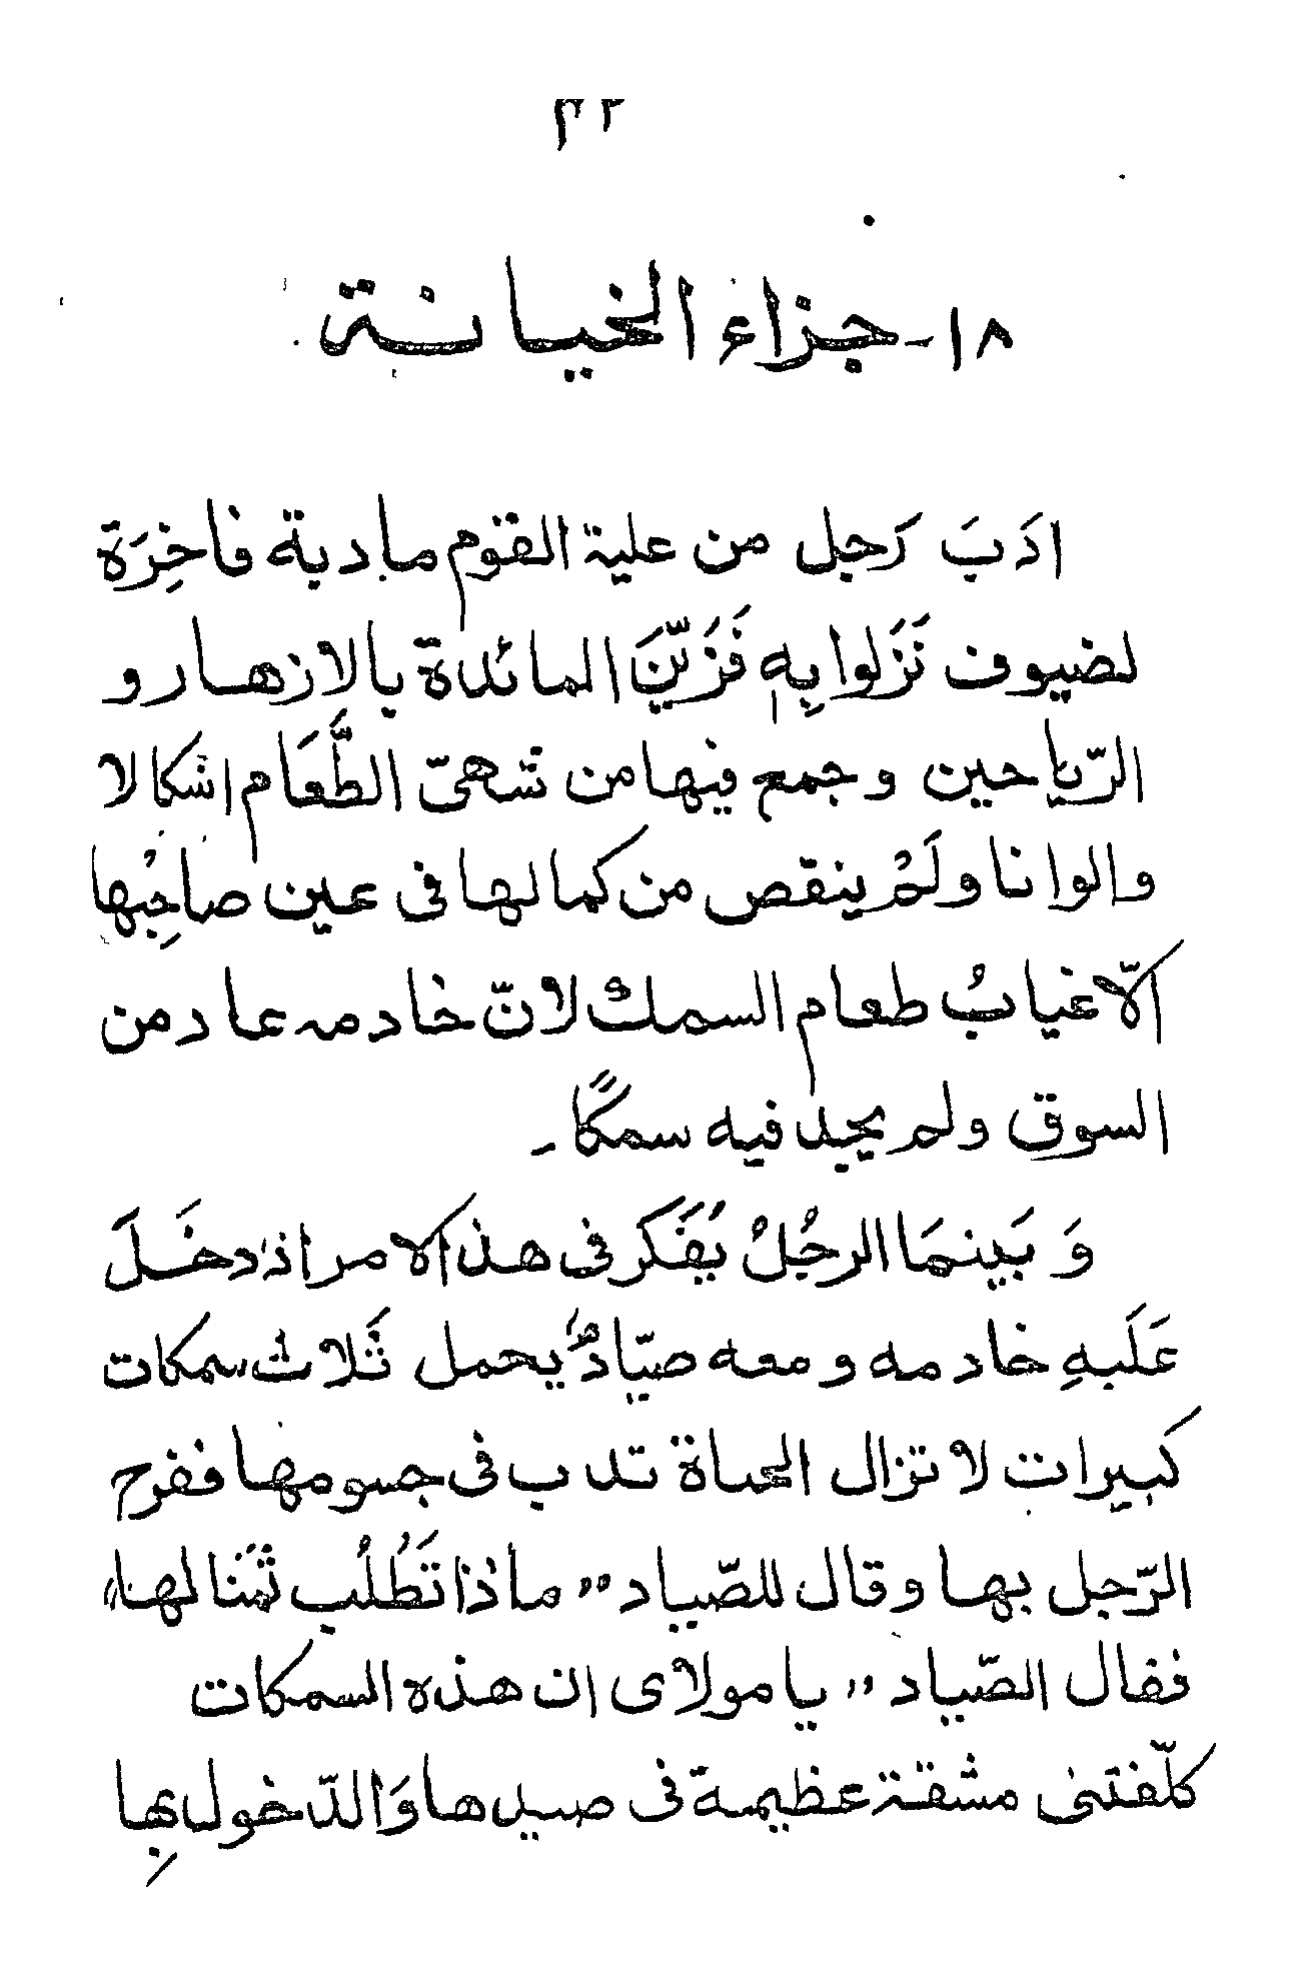 ١٨- جزاء الخيانة
ادَبَ رَجل من علية القوم مادبة فاخِرَة
لضيوف نَزَلوا بِهٖ فَزَيَّنَ المائدة بالازهار و
الرّياحين وجمع فيها من شهىّ الطَّعَام اشكالا
والوانا ولَمْ ينقص من كمالها فى عين صاحِبُها
الّا غيابُ طعام السمك لانّ خادمه عاد من
السوق ولم يجد فيه سمكًا ـ
وَ بَينمَا الرجُلُ يُفَكر فى هذا الامر اذ دخَلَ
عَلَيهِ خادمه ومعه صيّادٌ يحمل ثَلاث سمكات
كبيرات لا تزال الحياة تدب فى جسومها ففرح
الرّجل بها وقال للصّياد ,, ماذا تَطْلُب ثمَنا لها،،
فقال الصّياد ,, يا مولاى ان هذه السمكات
كلّفتنى مشقة عظيمة فى صيدها وَالدّخول بِها